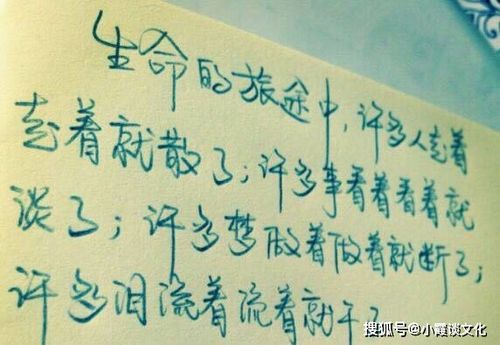 生命的旅途中，许多人走着
走着就散了；许多事看着看着就
淡了；许多梦做着做着就断了；
许多泪流着流着就干了
搜狐号@小霞谈文化